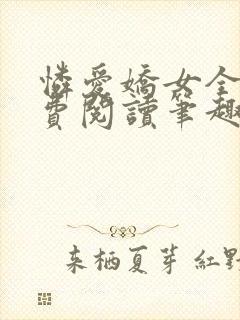 憐愛嬌女全
費閱讀筆趣
来栖夏芽 紅野